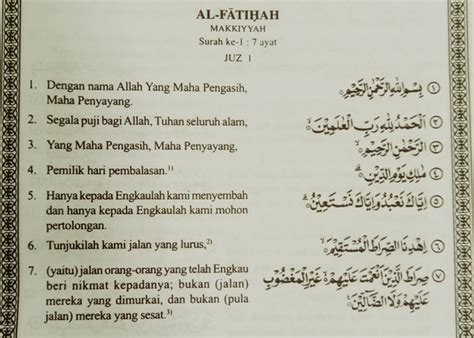 AL-FĀTIḤAH
MAKKIYYAH
Surah ke-1 : 7 ayat
JUZ 1
1. Dengan nama Allah Yang Maha Pengasih,
Maha Penyayang.
بِسْمِ اللّٰهِ الرَّحْمٰنِ الرَّحِيْمِ ۝١
2. Segala puji bagi Allah, Tuhan seluruh alam,
اَلْحَمْدُ لِلّٰهِ رَبِّ الْعٰلَمِيْنَۙ ۝٢
3. Yang Maha Pengasih, Maha Penyayang,
الرَّحْمٰنِ الرَّحِيْمِۙ ۝٣
4. Pemilik hari pembalasan.¹⁾
مٰلِكِ يَوْمِ الدِّيْنِۗ ۝٤
5. Hanya kepada Engkaulah kami menyembah
dan hanya kepada Engkaulah kami mohon
pertolongan.
اِيَّاكَ نَعْبُدُ وَاِيَّاكَ نَسْتَعِيْنُۗ ۝٥
6. Tunjukilah kami jalan yang lurus,²⁾
اِهْدِنَا الصِّرَاطَ الْمُسْتَقِيْمَۙ ۝٦
7. (yaitu) jalan orang-orang yang telah Engkau
beri nikmat kepadanya; bukan (jalan)
mereka yang dimurkai, dan bukan (pula
jalan) mereka yang sesat.³⁾
صِرَاطَ الَّذِيْنَ اَنْعَمْتَ عَلَيْهِمْ ەۙ غَيْرِ الْمَغْضُوْبِ
عَلَيْهِمْ وَلَا الضَّاۤلِّيْنَ ۝٧